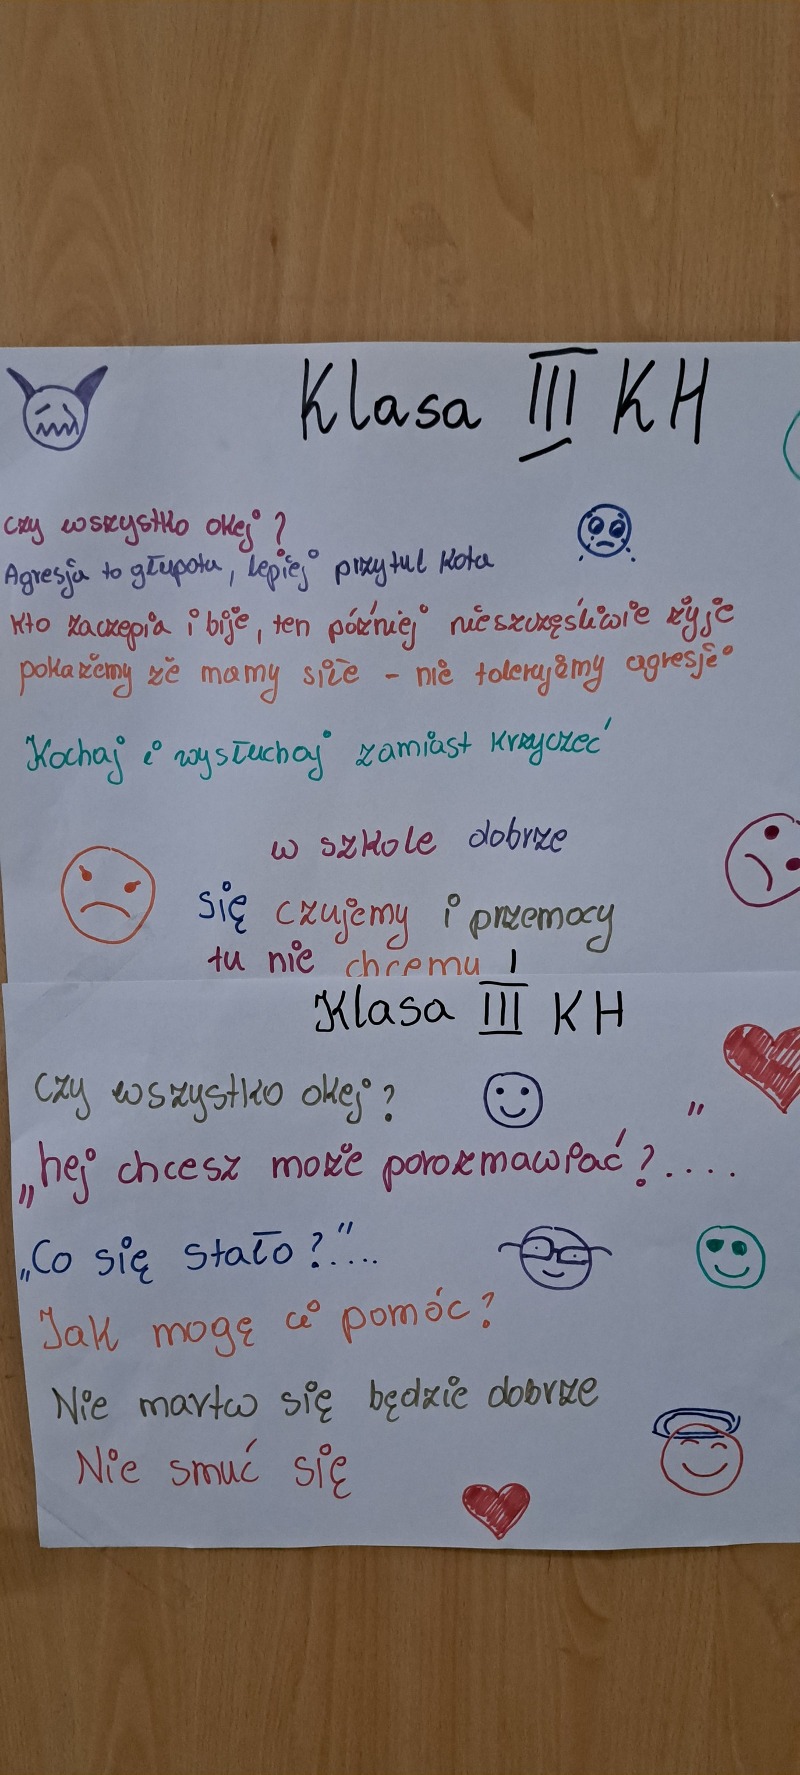 Klasa III KH
Czy wszystko okej?
Agresja to głupota, lepiej przytul kota
Kto zaczepia i bije, ten później nieszczęśliwie żyje
pokażemy że mamy siłe - nie tolerujemy agresje
Kochaj i wysłuchaj zamiast krzyczeć
w szkole dobrze
się czujemy i przemocy
tu nie chcemu !
Klasa III KH
Czy wszystko okej?
„hej chcesz może porozmawiać?....”
„Co się stało?”....
Jak mogę ci pomóc?
Nie martw się będzie dobrze
Nie smuć się